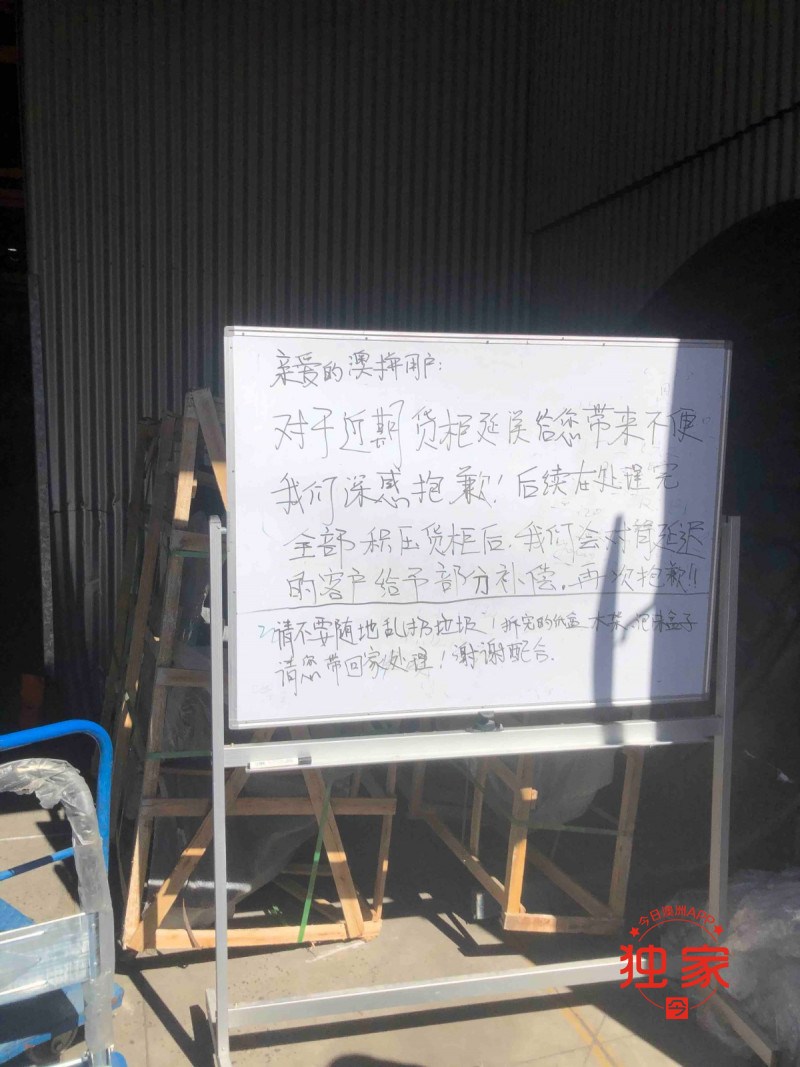 亲爱的澳拼用户：
对于近期货柜延误给您带来不便
我们深感抱歉！后续在处理完
全部积压货柜后.我们会对有延迟
的客户给予部分补偿.再次抱歉!!
请不要随地乱扔垃圾！拆完的纸盒 木架、泡沫盒子
请您带回家处理！谢谢配合.
今日澳洲APP
独家
今